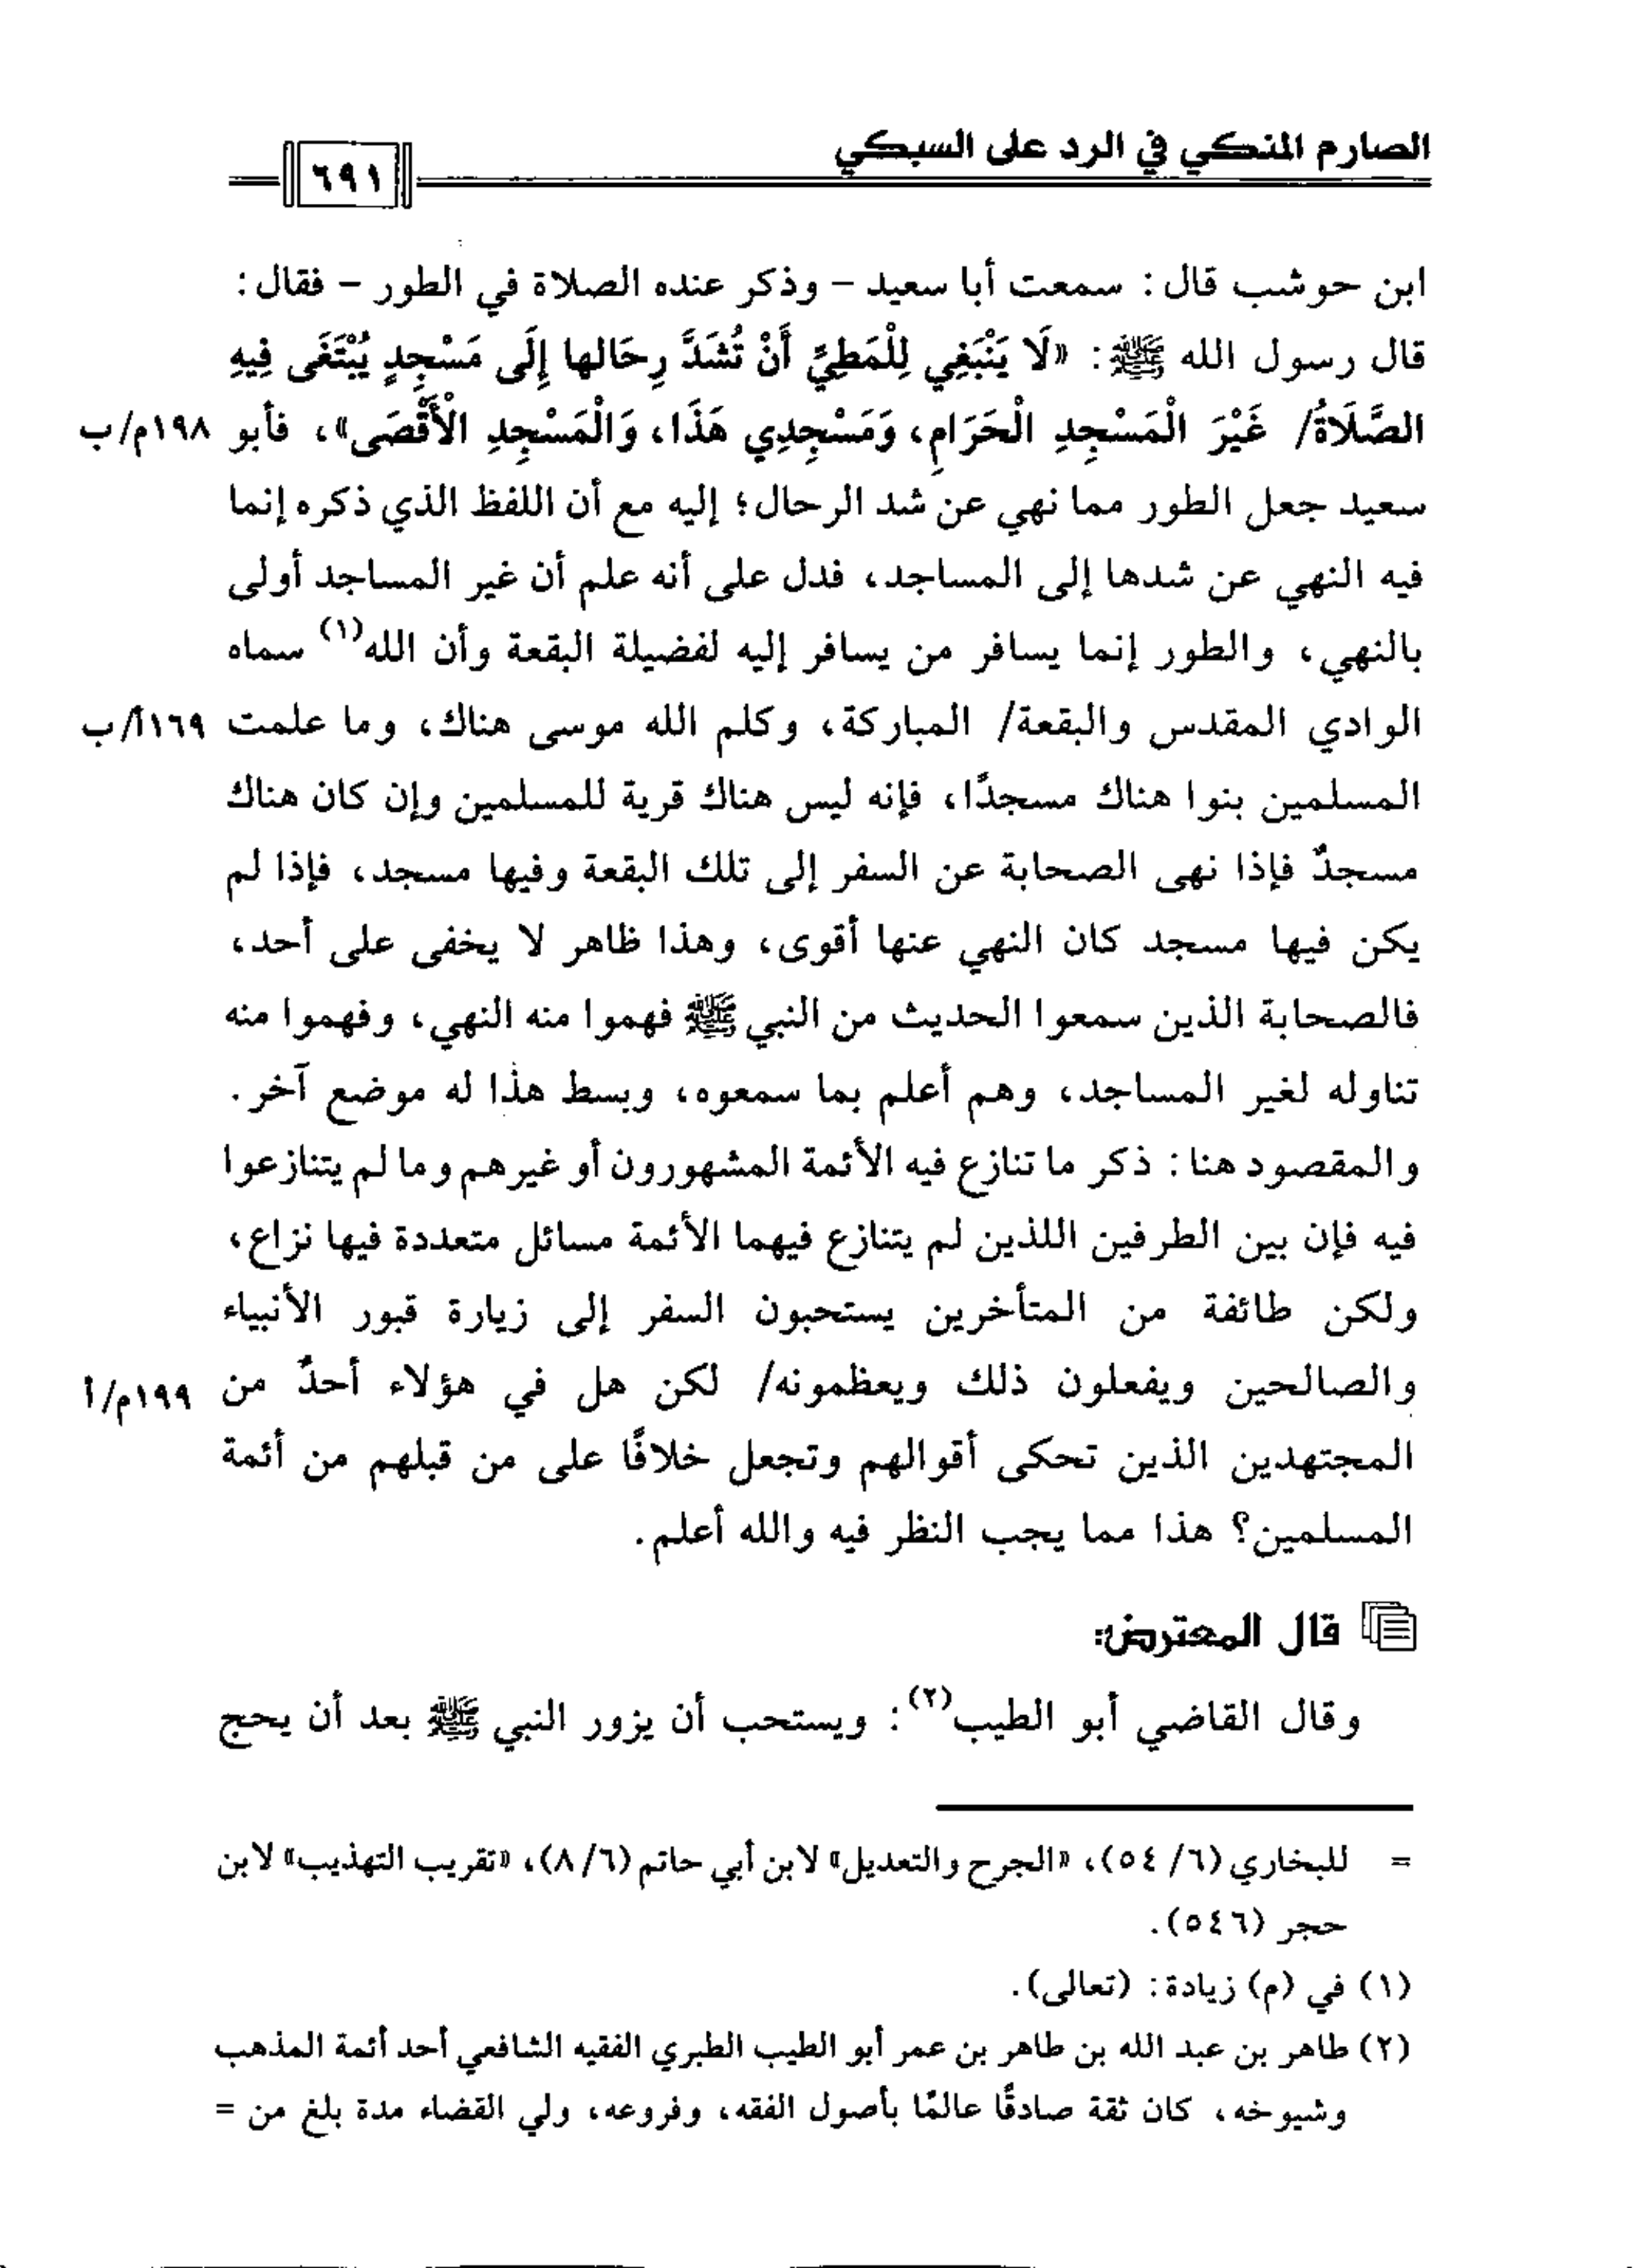 الصارم المنكي في الرد على السبكي
٦٩١
ابن حوشب قال: سمعت أبا سعيد – وذكر عنده الصلاة في الطور – فقال:
قال رسول الله ﷺ: «لَا يَنْبَغِي لِلْمَطِيِّ أَنْ تُشَدَّ رِحَالها إِلَى مَسْجِدٍ يُبْتَغَى فِيهِ
الصَّلَاةُ/ غَيْرَ الْمَسْجِدِ الْحَرَامِ، وَمَسْجِدِي هَذَا، وَالْمَسْجِدِ الْأَقْصَى»، فأبو ١٩٨م/ب
سعيد جعل الطور مما نهي عن شد الرحال؛ إليه مع أن اللفظ الذي ذكره إنما
فيه النهي عن شدها إلى المساجد، فدل على أنه علم أن غير المساجد أولى
بالنهي، والطور إنما يسافر من يسافر إليه لفضيلة البقعة وأن الله(١) سماه
الوادي المقدس والبقعة/ المباركة، وكلم الله موسى هناك، وما علمت ١٦٩أ/ب
المسلمين بنوا هناك مسجدًا، فإنه ليس هناك قرية للمسلمين وإن كان هناك
مسجدٌ فإذا نهى الصحابة عن السفر إلى تلك البقعة وفيها مسجد، فإذا لم
يكن فيها مسجد كان النهي عنها أقوى، وهذا ظاهر لا يخفى على أحد،
فالصحابة الذين سمعوا الحديث من النبي ﷺ فهموا منه النهي، وفهموا منه
تناوله لغير المساجد، وهم أعلم بما سمعوه، وبسط هذا له موضع آخر.
والمقصود هنا: ذكر ما تنازع فيه الأئمة المشهورون أو غيرهم وما لم يتنازعوا
فيه فإن بين الطرفين اللذين لم يتنازع فيهما الأئمة مسائل متعددة فيها نزاع،
ولكن طائفة من المتأخرين يستحبون السفر إلى زيارة قبور الأنبياء
والصالحين ويفعلون ذلك ويعظمونه/ لكن هل في هؤلاء أحدٌ من ١٩٩م/أ
المجتهدين الذين تحكى أقوالهم وتجعل خلافًا على من قبلهم من أئمة
المسلمين؟ هذا مما يجب النظر فيه والله أعلم.
قال المعترض:
وقال القاضي أبو الطيب(٢): ويستحب أن يزور النبي ﷺ بعد أن يحج
= للبخاري (٦/ ٥٤)، «الجرح والتعديل» لابن أبي حاتم (٦/ ٨)، «تقريب التهذيب» لابن
حجر (٥٤٦).
(١) في (م) زيادة: (تعالى).
(٢) طاهر بن عبد الله بن طاهر بن عمر أبو الطيب الطبري الفقيه الشافعي أحد أئمة المذهب
وشيوخه، كان ثقة صادقًا عالمًا بأصول الفقه، وفروعه، ولي القضاء مدة بلغ من =